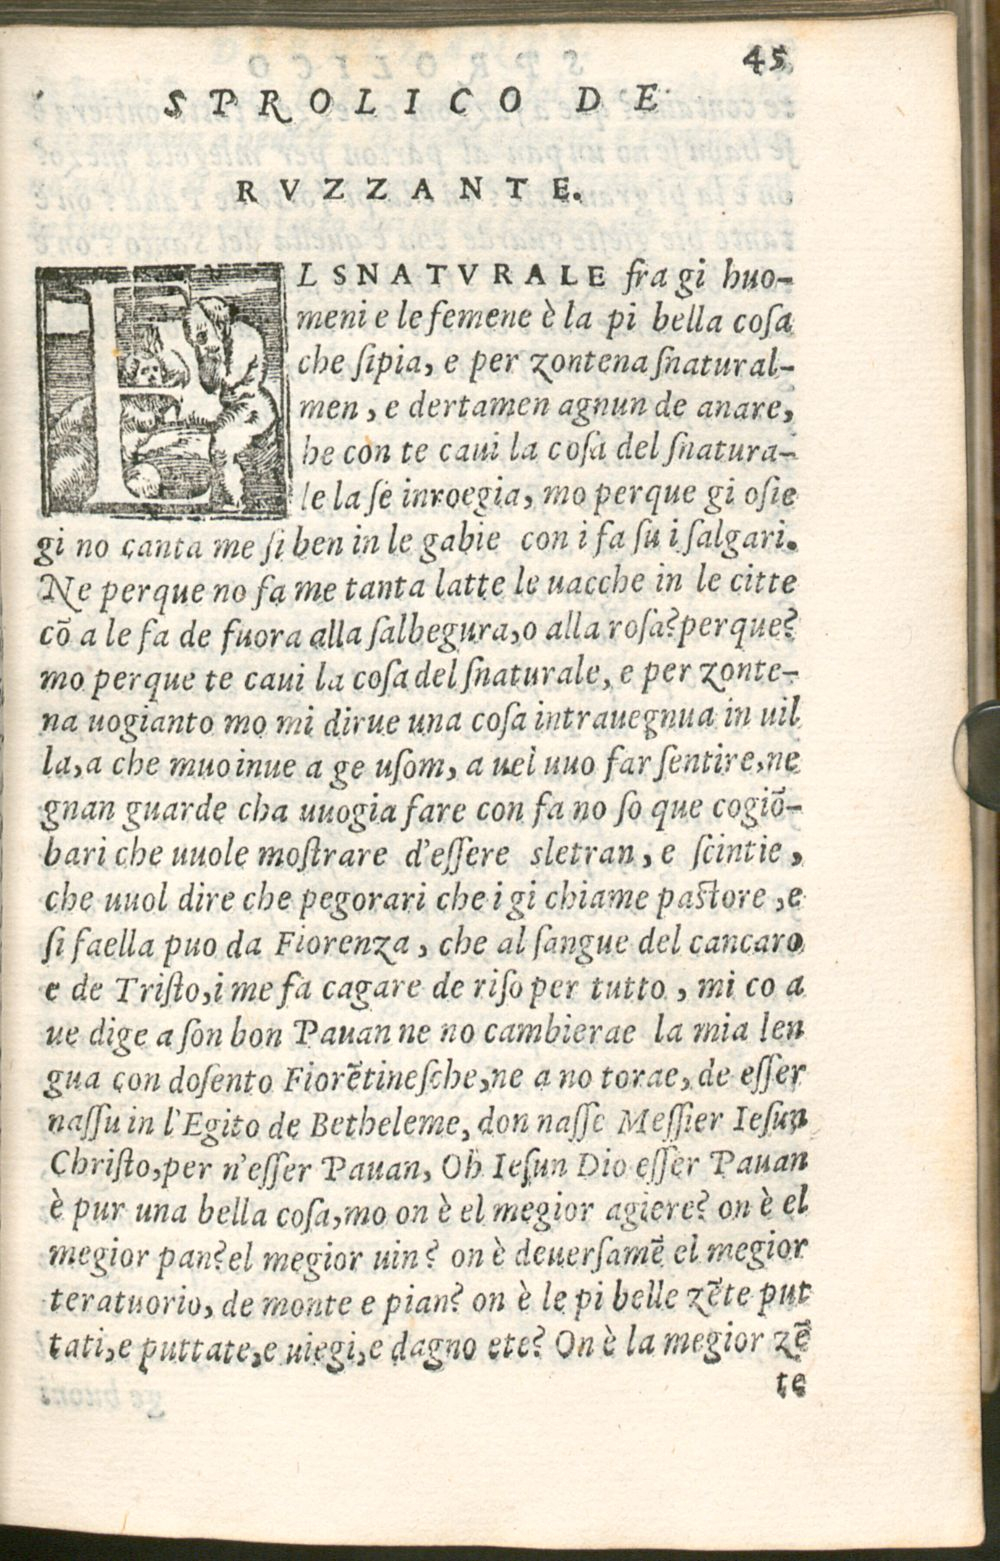 45
SPROLICO DE
RVZZANTE.
EL SNATVRALE fra gi huo-
meni e le femene è la pi bella cosa
che sipia, e per zontena snatural-
men, e dertamen agnun de anare,
he con te caui la cosa del snatura-
le la se inroegia, mo perque gi osie
gi no canta me si ben in le gabie con i fa su i salgari.
Ne perque no fa me tanta latte le uacche in le citte
cō a le fa de fuora alla salbegura, o alla rosa? perque?
mo perque te caui la cosa del snaturale, e per zonte-
na uogianto mo mi dirue una cosa intrauegnua in uil
la, a che muoinue a ge usom, a uel uuo far sentire, ne
gnan guarde cha uuogia fare con fa no so que cogiō-
bari che uuole mostrare d'essere sletran, e scintie,
che uuol dire che pegorari che i gi chiame pastore, e
si faella puo da Fiorenza, che al sangue del cancaro
e de Tristo, i me fa cagare de riso per tutto, mi co a
ue dige a son bon Pauan ne no cambierae la mia len
gua con dosento Fiorētinesche, ne a no torae, de esser
nassu in l'Egito de Betheleme, don nasse Messier Iesun
Christo, per n'esser Pauan, Oh Iesun Dio esser Pauan
è pur una bella cosa, mo on è el megior agiere? on è el
megior pan? el megior uin? on è deuersamē el megior
teratuorio, de monte e pian? on è le pi belle zēte put
tati, e puttate, e uiegi, e dagno ete? On è la megior zē
te